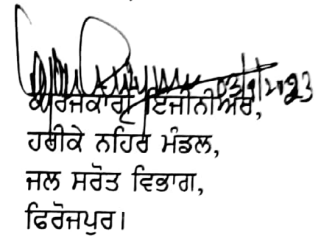 03/9/2023
ਕਾਰਜਕਾਰੀ ਇੰਜੀਨੀਅਰ,
ਹਰੀਕੇ ਨਹਿਰ ਮੰਡਲ,
ਜਲ ਸਰੋਤ ਵਿਭਾਗ,
ਫਿਰੋਜਪੁਰ।